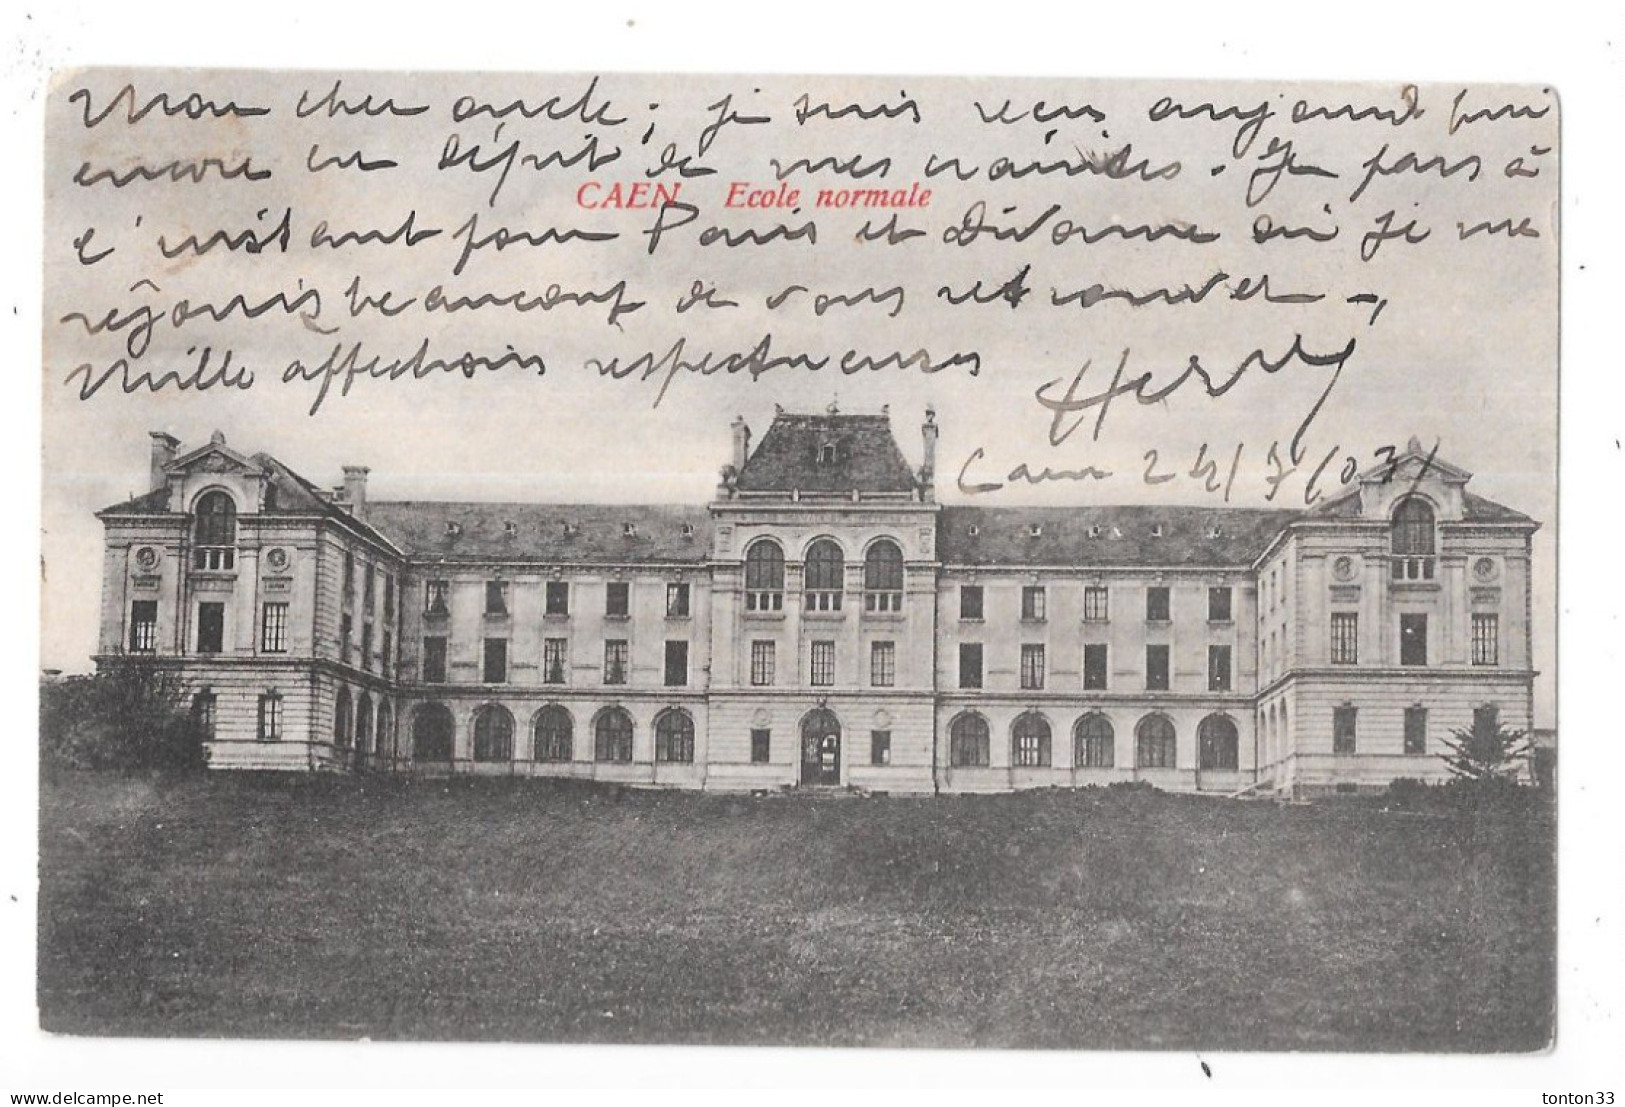 Mon cher oncle ; je suis recu aujourd'hui
encore en dépit de mes craintes. Je pars à
CAEN Ecole normale
l'instant pour Paris et Divonne où je me
réjouis beaucoup de vous retrouver -,
Mille affections respectueuses
Henry
Caen 24/7/03/
tonton33